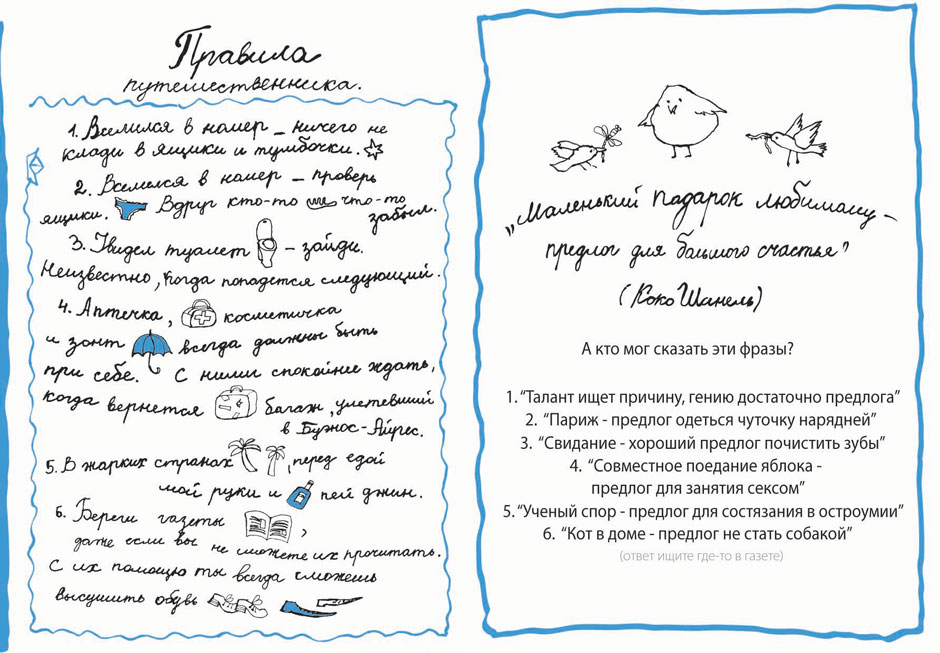 Правила
путешественника.
1. Вселился в номер – ничего не
клади в ящики и тумбочки.
2. Вселился в номер – проверь
ящики. Вдруг кто-то что-то
забыл.
3. Увидел туалет – зайди.
Неизвестно, когда попадется следующий.
4. Аптечка, косметичка
и зонт всегда должны быть
при себе. С ними спокойнее ждать,
когда вернется багаж, улетевший
в Буэнос-Айрес.
5. В жарких странах, перед едой
мой руки и пей джин.
6. Береги газеты,
даже если вы не сможете их прочитать.
С их помощью ты всегда сможешь
высушить обувь
„Маленький подарок любимому –
предлог для большого счастья”
(Коко Шанель)
А кто мог сказать эти фразы?
1. “Талант ищет причину, гению достаточно предлога”
2. “Париж - предлог одеться чуточку нарядней”
3. “Свидание - хороший предлог почистить зубы”
4. “Совместное поедание яблока -
предлог для занятия сексом”
5. “Ученый спор - предлог для состязания в остроумии”
6. “Кот в доме - предлог не стать собакой”
(ответ ищите где-то в газете)